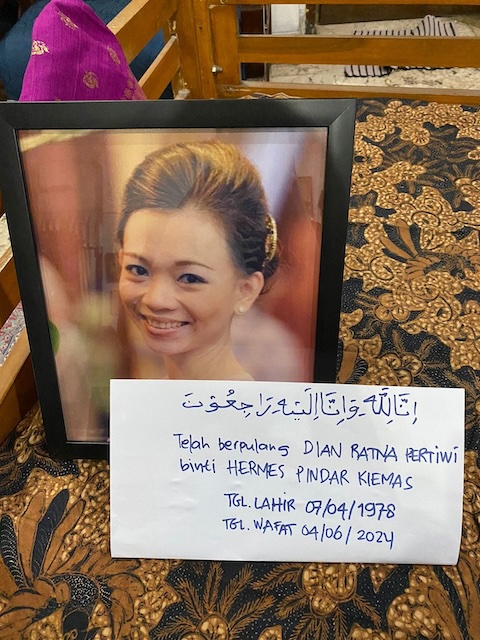 إِنَّا لِلّٰهِ وَإِنَّا إِلَيْهِ رَاجِعُوْنَ
Telah berpulang DIAN RATNA PERTIWI
binti HERMES PINDAR KIEMAS
TGL. LAHIR 07/04/1978
TGL. WAFAT 04/06/2024